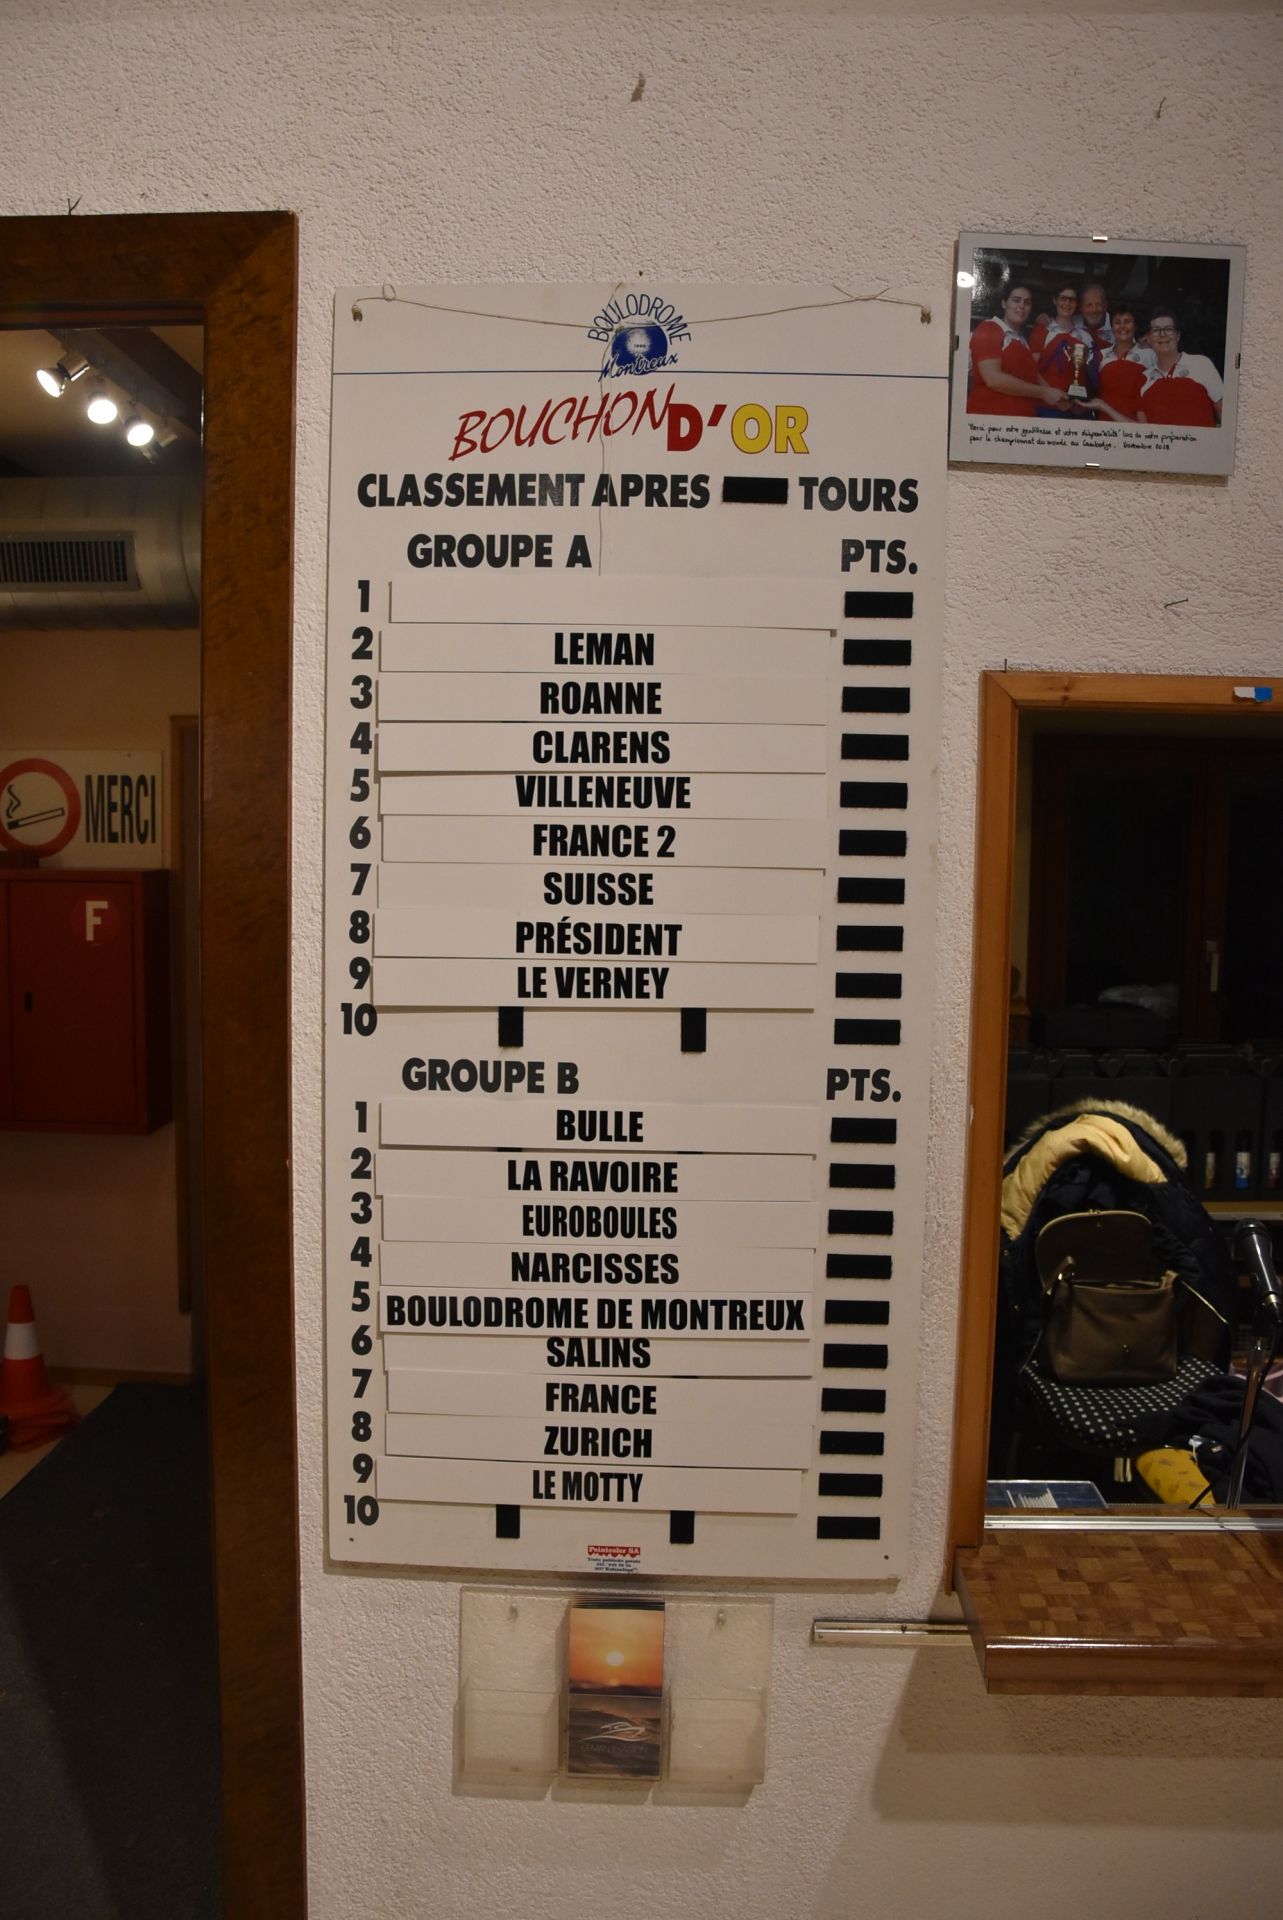 BOULODROME
Montreux
BOUCHON D'OR
CLASSEMENT APRES TOURS
GROUPE A PTS.
1
2 LEMAN
3 ROANNE
4 CLARENS
5 VILLENEUVE
6 FRANCE 2
7 SUISSE
8 PRÉSIDENT
9 LE VERNEY
10
GROUPE B PTS.
1 BULLE
2 LA RAVOIRE
3 EUROBOULES
4 NARCISSES
5 BOULODROME DE MONTREUX
6 SALINS
7 FRANCE
8 ZURICH
9 LE MOTTY
10
Peintcolor SA
Merci pour votre gentillesse et votre disponibilité lors de notre préparation
pour le championnat du monde au Cambodge. Novembre 2018
MERCI
F